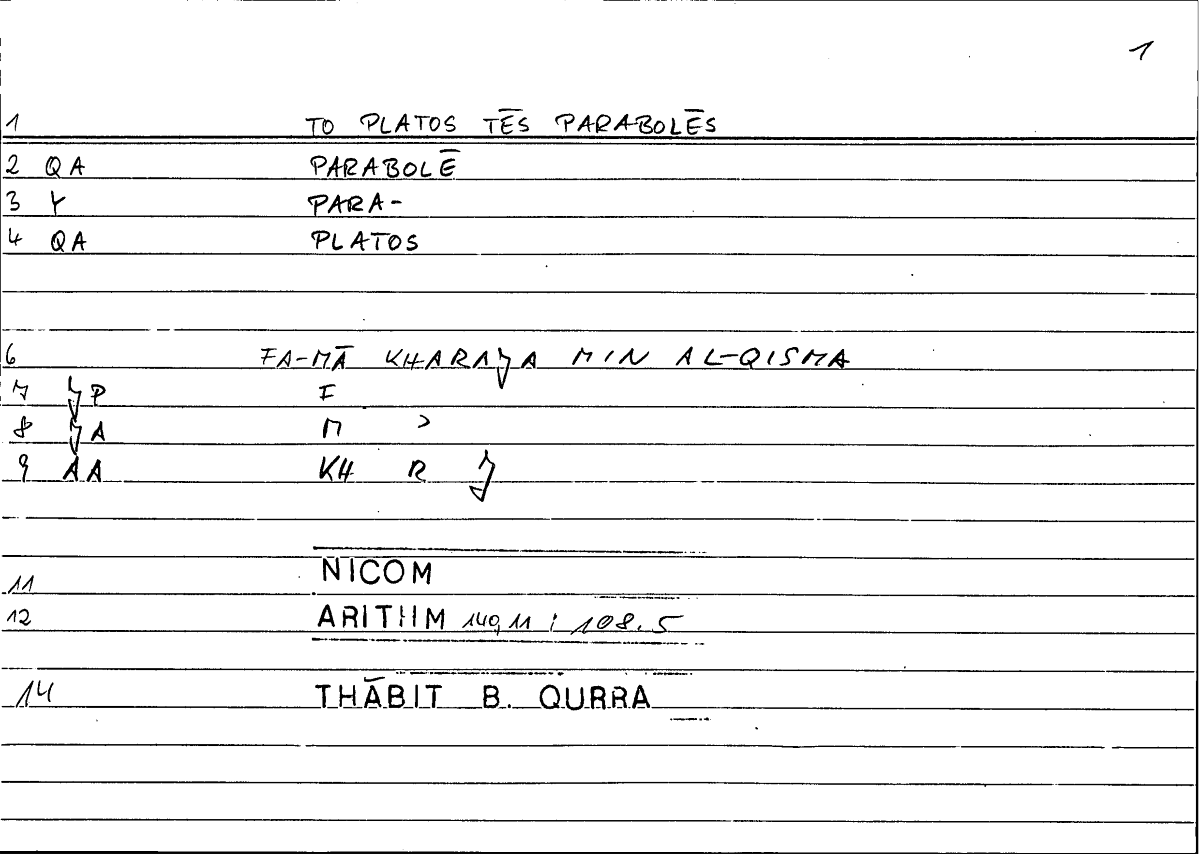 1
1 TO PLATOS TĒS PARABOLĒS
2 QA PARABOLĒ
3 Y PARA-
4 QA PLATOS
6 FA-MĀ KHARAJA MIN AL-QISMA
7 JP F
8 JA M ʾ
9 AA KH R J
11 NICOM
12 ARITHM 140,11 ; 108.5
14 THĀBIT B. QURRA